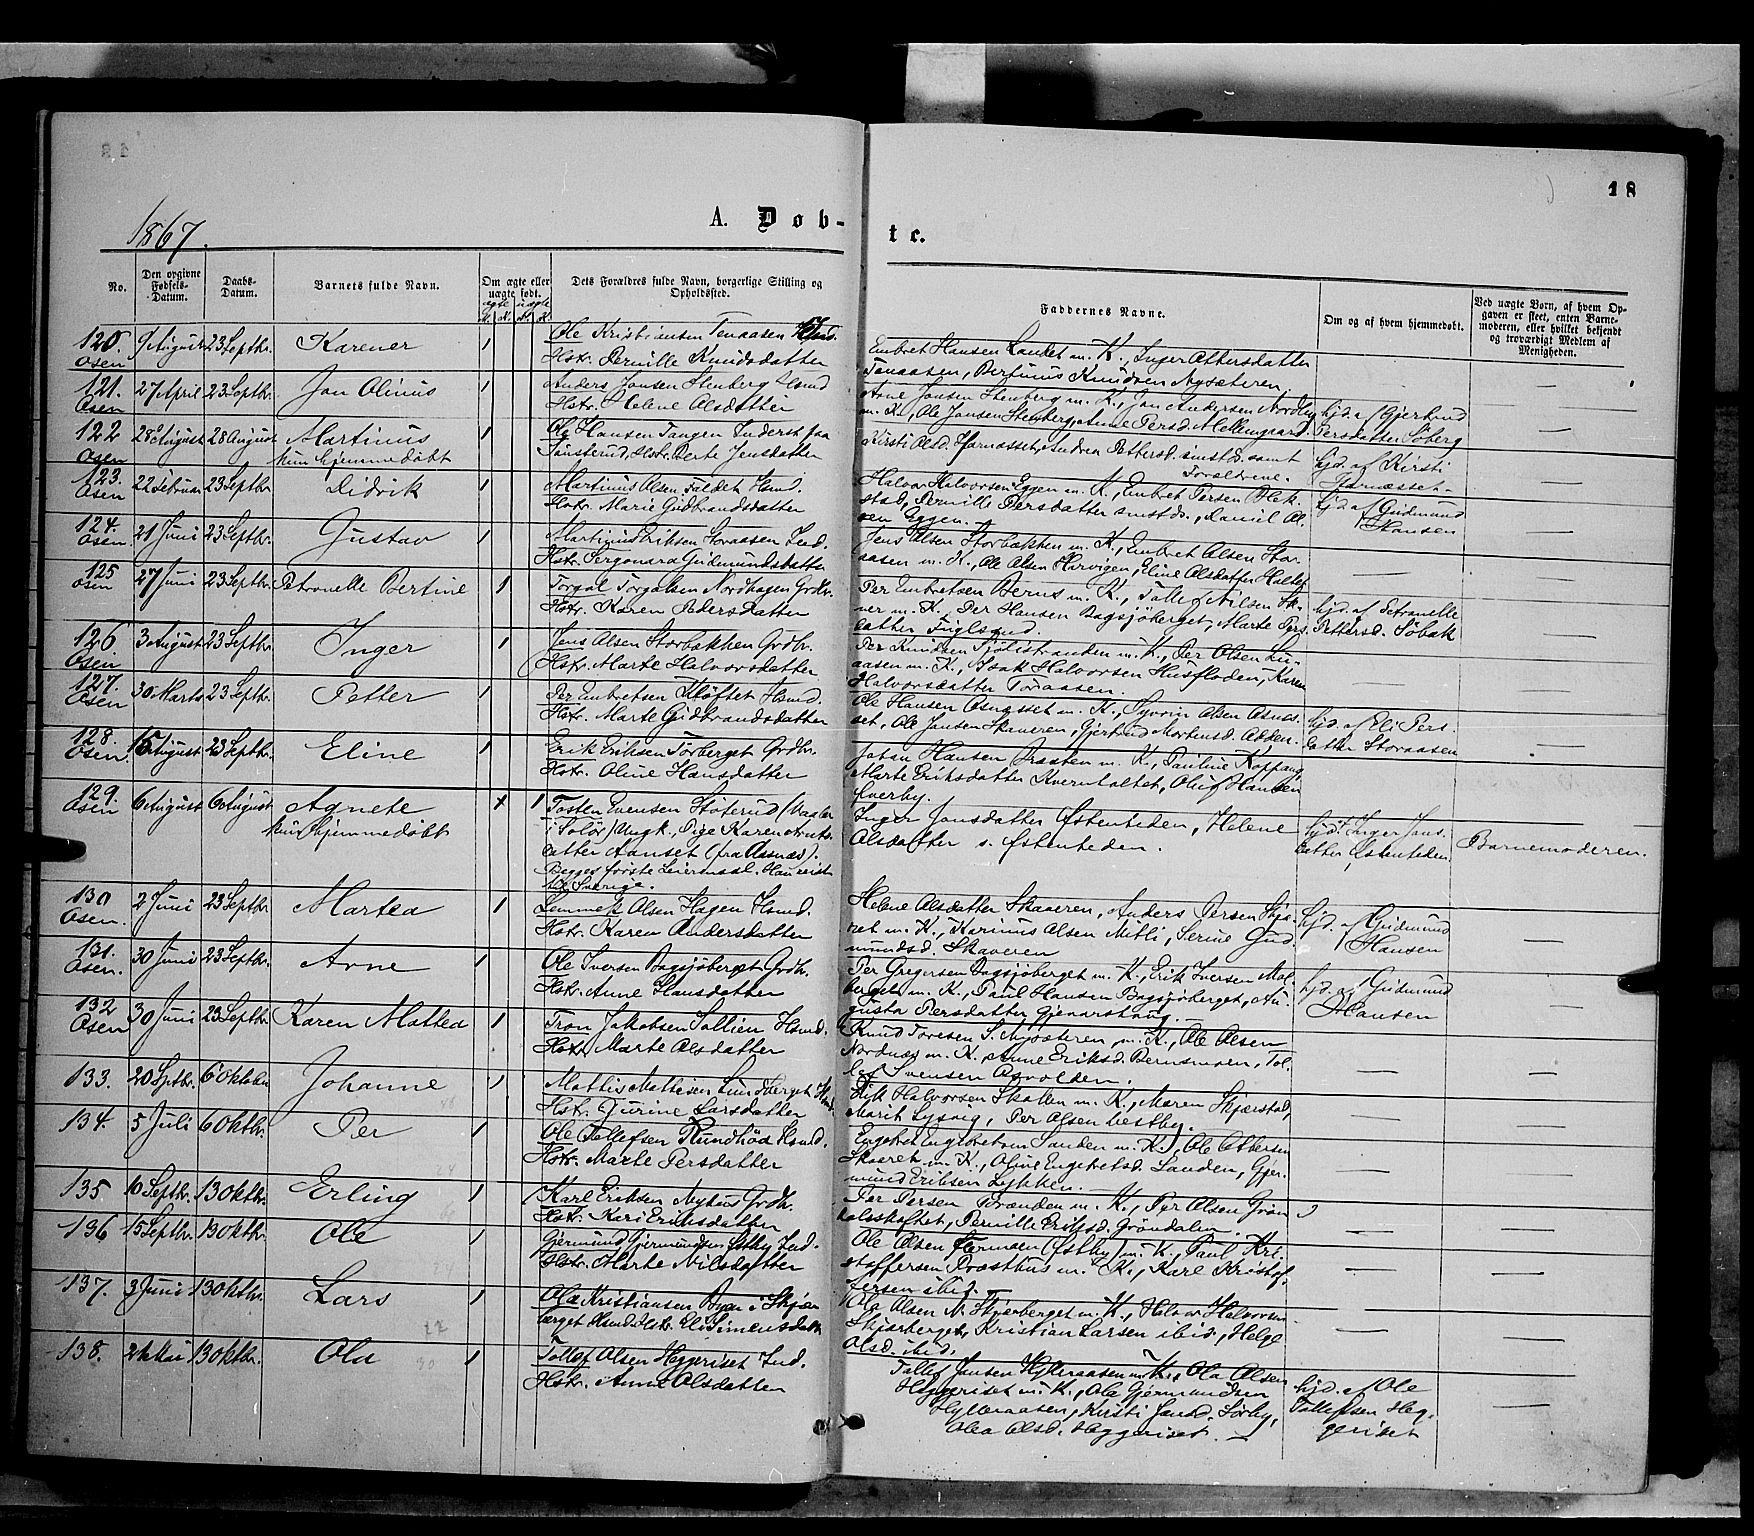 18
1867.
A. Døb-
te.
No.
Den opgivne Fødsels-Datum.
Daabs-Datum.
Barnets fulde Navn.
Om ægte eller uægte født.
Dets Forældres fulde Navn, borgerlige Stilling og Opholdssted.
Faddernes Navne.
Om og af hvem hjemmedøbt.
Ved uægte Børn, af hvem Opgaven er skeet, enten Barnemoderen, eller hvilket bekjendt og troværdigt Medlem af Menigheden.
120. Osen 9 August 23 Septbr. Karener 1
Ole Kristiansen Tenaasen
Hstr. Pernille Knudsdatter
Embret Hansen Landet m. K., Inger Ottersdatter
Tenaasen, Bertinus Knudsen Nysæteren.
121. Osen 27 April 23 Septbr. Jon Olinus 1
Anders Jonsen Stenberg Hsmd
Hstr. Helene Olsdatter
Arne Jonsen Stenberg m. K., Jon Andersen Nordby
m. K., Ole Jonsen Stenberg, Anne Persd. Mellemgaard.
hjd. af Gjertrud
Persdatter Søberg
122 Osen 28 August 28 August Martinus 1
kun hjemmedøbt
Ole Hansen Tangen Inderst paa
Hstr. Berte Jensdatter
Kirsti Olsd. Harnæsset, Andrea Pettersd. sinstds. samt
Forældrene.
hjd. af Kirsti
Harnæsset
123. Osen 22 Februar 23 Septbr Didrik 1
Martinus Olsen Faldet Hsmd.
Hstr. Marie Gudbrandsdatter
Halvor Halvorsen Eggen m. K., Embret Persen Blek-
stad, Pernille Persdatter smstds., Daniel Ol-
sen Eggen.
hjd. af Gudmund
Hansen
124. Osen 21 Juni 23 Septbr. Gustav 1
Martinus Eriksen Storaasen Ind.
Hstr. Gudmundsdatter
Jens Olsen Storbækken m. K., Embret Olsen Stor-
aasen m. K., Ole Olsen Harvigen, Eline Olsdatter
125 Osen 27 Juni 23 Septbr Petronelle Bertine 1
Torgal Torgalsen Nordhagen Grdbr.
Hstr. Karen Pedersdatter
Per Embretsen Berns m. K., Tollef Nilsen
m. K., Per Hansen Bagsjøberget, Marte Pers-
datter Fuglsund.
hjd. af Petronelle
Pettersd. Søbak
126 Osen 3 August 23 Septbr. Inger 1
Jens Olsen Storbækken Grdbr.
Hstr. Marte Halvorsdatter
Per Knudsen Sjølistranden m. K., Per Olsen
m. K., Isak Halvorsen Husfloden, Karen
Halvorsdatter Tenaasen.
127. Osen 30 Marts 23 Septbr Petter 1
Per Embretsen Kløftet Hsmd.
Hstr. Marte Gudbrandsdatter
Ole Hansen Asnæsset m. K., Syverin Olsen Asnæs-
set, Ole Jonsen Skaveren, Gjertrud Mortensd.
hjd. af Eli Pers-
datter Storaasen
128. Osen. 15 August 23 Septbr. Eline 1
Erik Eriksen Torberget Grdbr.
Hstr. Oline Hansdatter
Johan Hansen Braaten m. K., Pauline Koppang,
Marte Eriksdatter Kverntoltet, Oluf Hansen
Øverby.
129. Osen 6 August 6 August Agnete + 1
kun hjemmedøbt
Tosten Evensen Støterud (Vaaler
i Solør) Ungk., Pige Karen
datter Aanset (fra Aasnes).
Begges første Leiermaal. Han reist
til Sverige.
Inger Jonsdatter Østenheden, Helene
Olsdatter s. Østenheden.
hjd. Inger Jons-
datter Østenheden
Barnemoderen.
130 Osen. 2 Juni 23 Septbr Martea 1
Lemmek Olsen Hagen Hsmd.
Hstr. Karen Andersdatter
Helene Olsdatter Skaveren, Anders Persen
m. K., Karinus Olsen Mitli, Serine Gud-
mundsd. Skaveren
hjd. af Gudmund
Hansen
131. Osen. 30 Juni 23 Septbr. Arne 1
Ole Iversen Bagsjøberget Grdbr.
Hstr. Anne Hansdatter
Per Gregersen Bagsjøberget m. K., Erik Iversen
m. K., Paul Hansen Bagsjøberget, Au-
gusta Persdatter
hjd. af Gudmund
Hansen
132 Osen 30 Juni 23 Septbr. Karen Mathea 1
Tron Jakobsen Sollien Hsmd.
Hstr. Marte Olsdatter
Knud Toresen S. Nysæteren m. K., Ole Olsen
Nordnæs m. K., Anne Eriksd. Bernsmoen, Tol-
lef Svensen
133. 20 Sptbr. 6 Oktober Johanne 1
Mathis Mathisen Lundberget Hsmd.
Hstr. Jurine Larsdatter
Erik Halvorsen Skatten m. K., Maren Skjærstad,
Marit Lysvig, Per Olsen Vestby.
134. 5 Juli 6 Oktbr. Per 1
Ole Tollefsen Rundhød Hsmd.
Hstr. Marte Persdatter
Engebret Engebretsen Sanden m. K., Ole Ottersen
Skaaret m. K., Oline Engebretsd. Sanden, Gjer-
mund Eriksen Lykken.
135. 10 Septbr. 13 Oktbr. Erling 1
Karl Eriksen Nyhus Grdb.
Hstr. Kari Eriksdatter
Per Persen Brænden m. K., Per Olsen Grøn-
, Pernille Eriksd. Grøndalen.
136 15 Septbr. 13 Oktbr. Ole 1
Gjermund Gjermundsen Østby Ind.
Hstr. Marte Nilsdatter
Ole Olsen (Østby) m. K., Paul Kri-
stoffersen Præsthus m. K., Karl Kristof-
fersen ibid.
137. 3 Juni 13 Oktbr. Lars 1
Ola Kristiansen Byen i Skjær-
berget Hsmd. Hstr. Eli Simensdatter
Ola Olsen N. Skjærberget m. K., Halvor Halvorsen
Skjærberget, Kristian Larsen ibid., Helge
Olsd. ibid.
138. 24 Mai 13 Oktbr. Ola 1
Tollef Olsen Heggeriset Ind.
Hstr. Anne Olsdatter
Tollef Jonsen Hylleraasen m. K., Ola Olsen
Heggeriset m. K., Ole Gjermundsen
Hylleraasen, Kirsti Jonsd. Sørby,
Olea Olsd. Heggeriset.
hjd. af Ole
Tollefsen Heg-
geriset